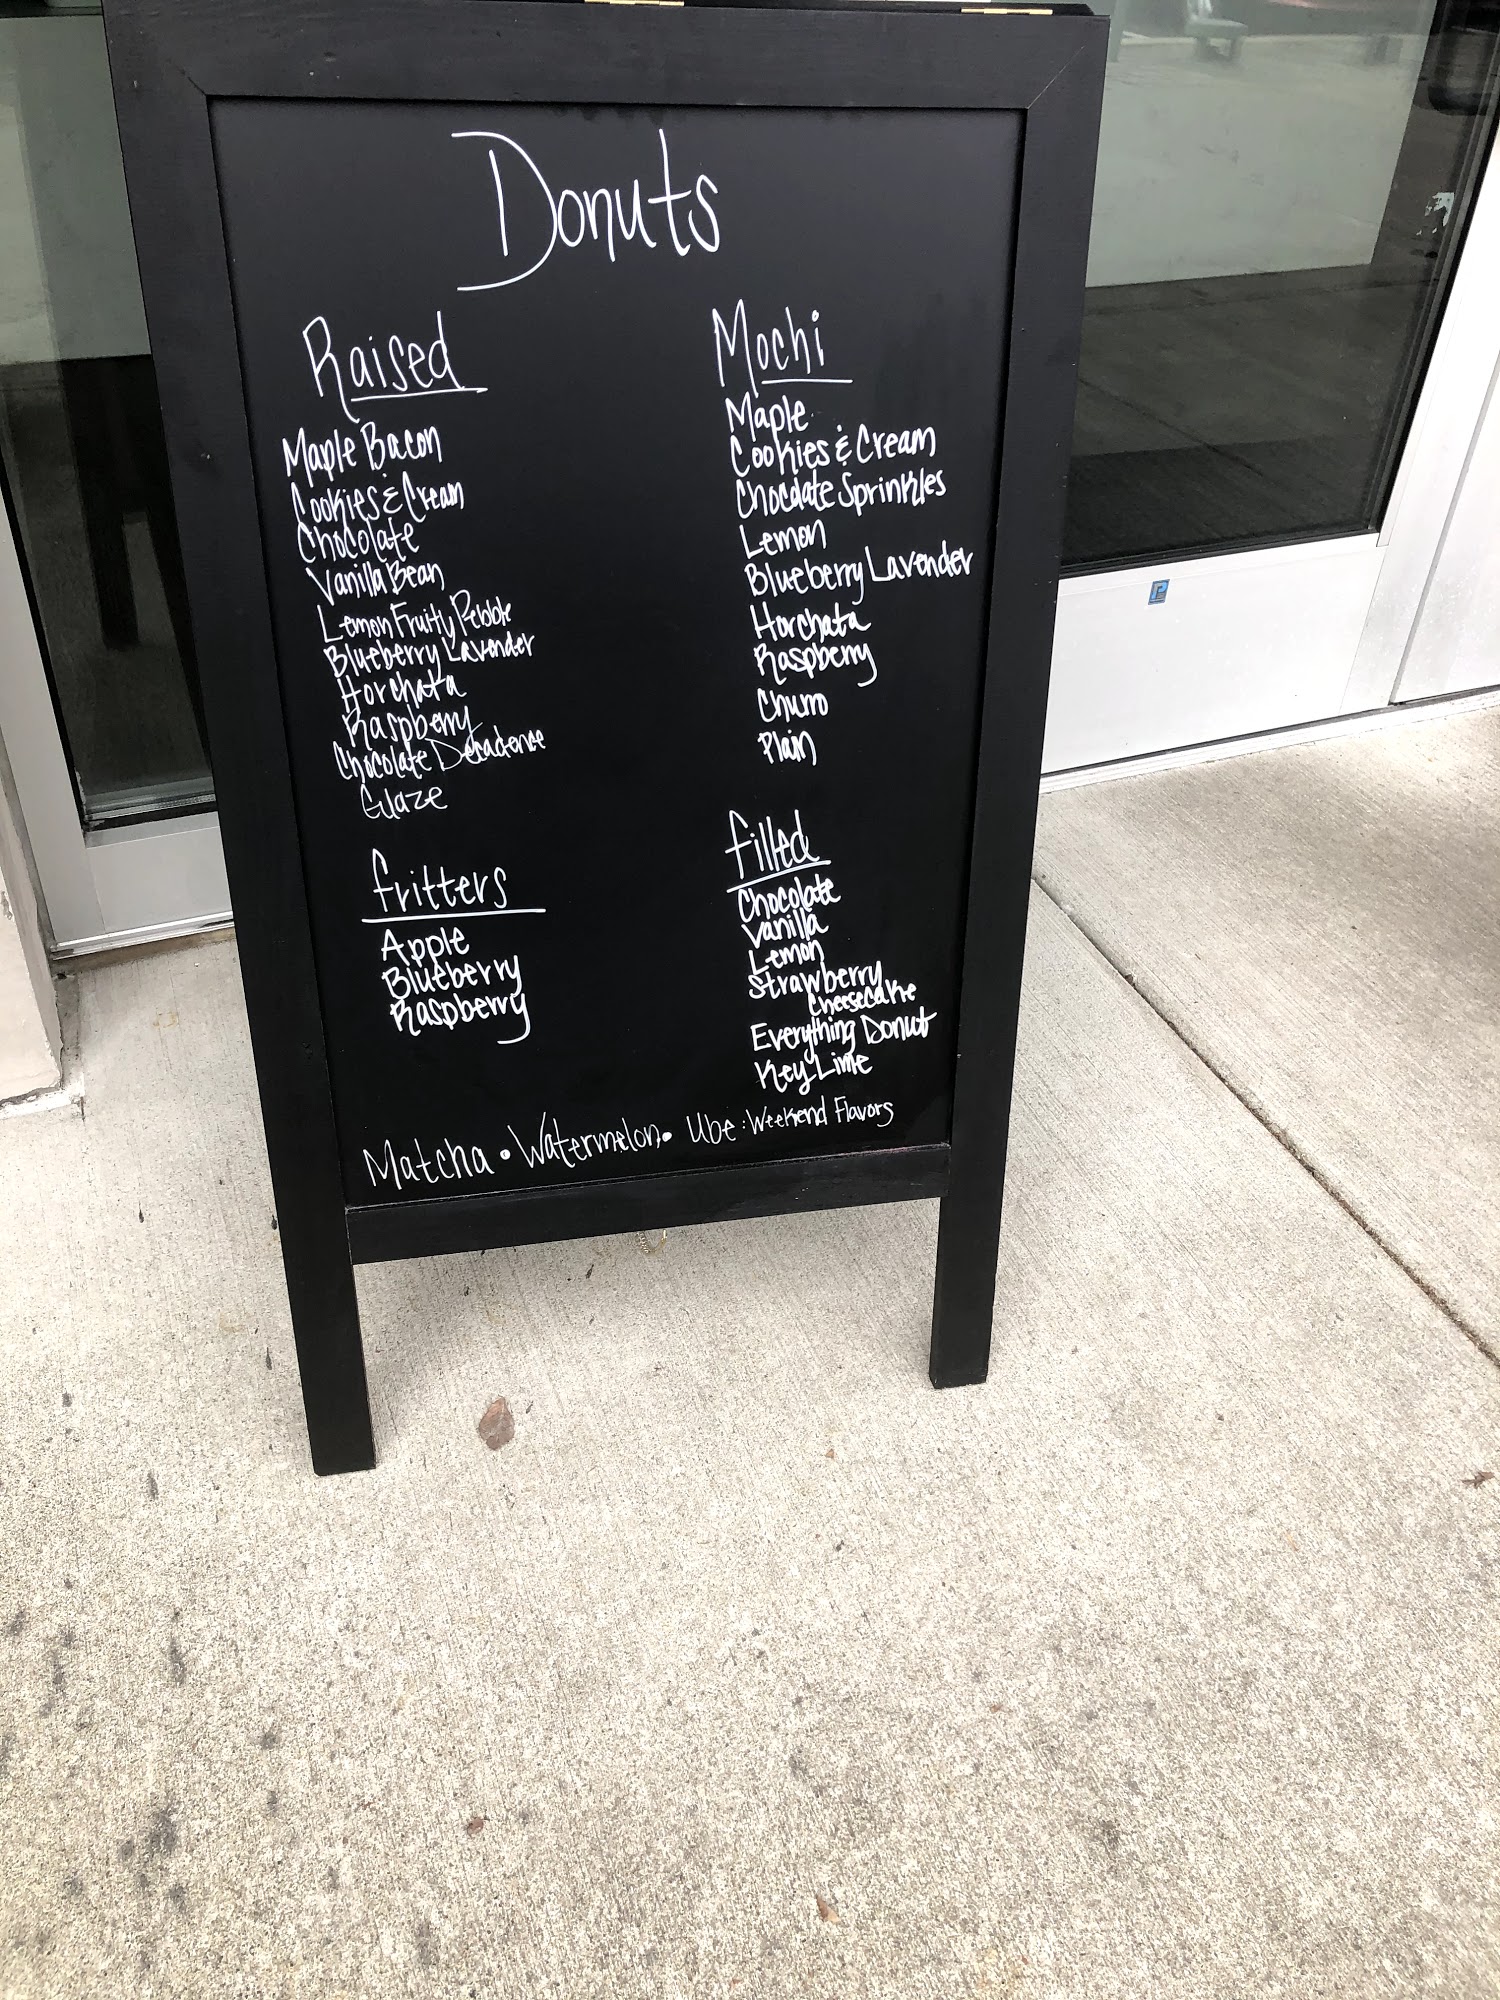 Donuts
Raised
Maple Bacon
Cookies & Cream
Chocolate
Vanilla Bean
Lemon Fruity Pebble
Blueberry Lavender
Horchata
Raspberry
Chocolate Decadence
Glaze
fritters
Apple
Blueberry
Raspberry
Mochi
Maple
Cookies & Cream
Chocolate Sprinkles
Lemon
Blueberry Lavender
Horchata
Raspberry
Churro
Plain
filled
Chocolate
Vanilla
Lemon
Strawberry
Cheesecake
Everything Donut
Key Lime
Matcha • Watermelon • Ube : Weekend Flavors
P